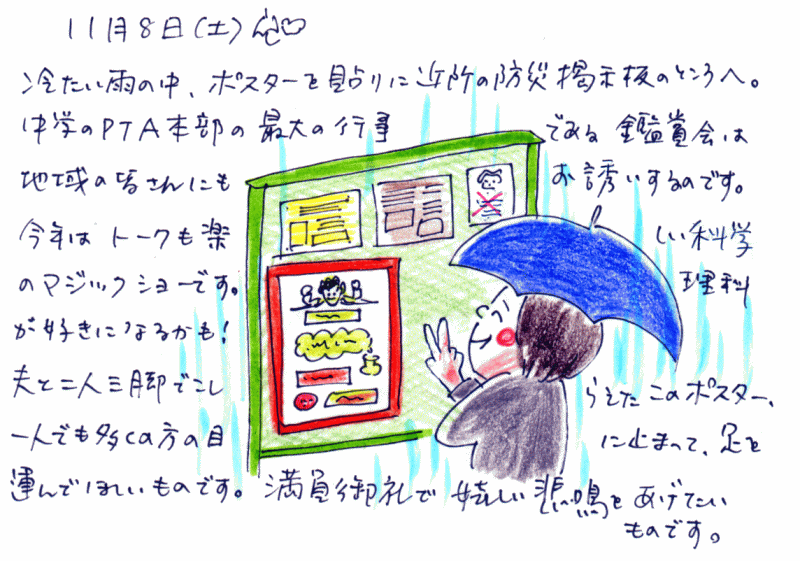 11月8日(土)
冷たい雨の中、ポスターを貼りに近所の防災掲示板のところへ。
中学のPTA本部の最大の行事である鑑賞会は
地域の皆さんにもお誘いするのです。
今年はトークも楽しい科学
のマジックショーです。理科
が好きになるかも!
夫と二人三脚でこしらえたこのポスター、
一人でも多くの方の目に止まって、足を
運んでほしいものです。満員御礼で嬉しい悲鳴をあげたい
ものです。